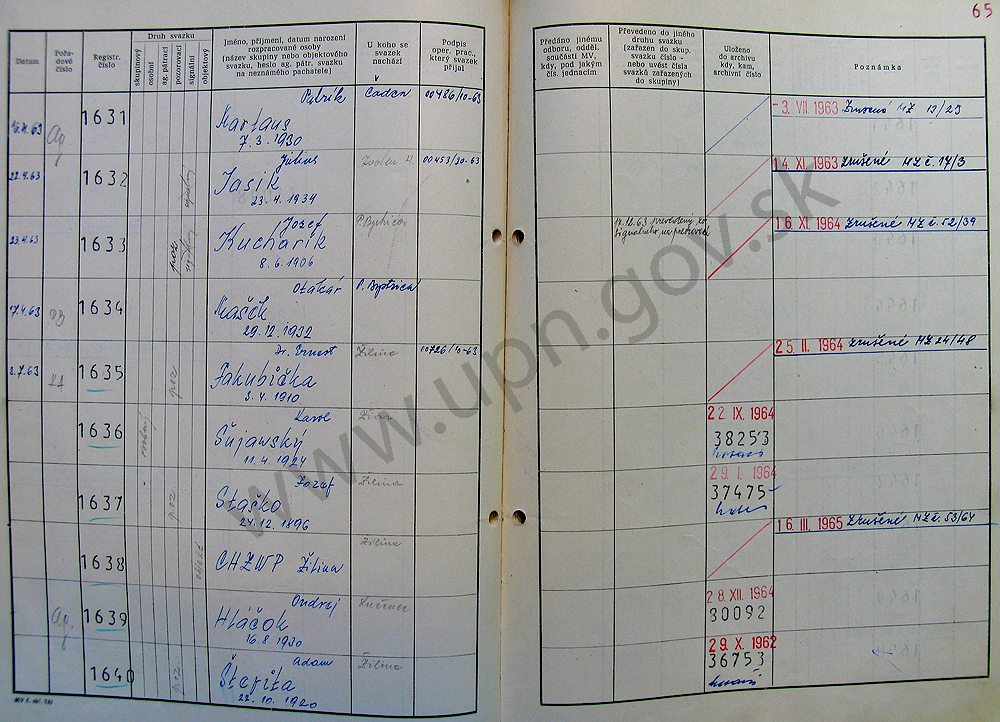 65
Datum
Pořadové číslo
Registr. číslo
Druh svazku
skupinový
osobní
ag. pátrací
pozorovací
signální
objektový
Jméno, příjmení, datum narození
rozpracované osoby
(název skupiny nebo objektového
svazku, heslo ag. pátr. svazku
na neznámého pachatele)
U koho se
svazek
nachází
Podpis
oper. prac.,
který svazek
přijal
Předáno jinému
odboru, odděl.
součásti MV,
kdy, pod jakým
čís. jednacím
Převedeno do jiného
druhu svazku
(zařazen do skup.
svazku číslo -
nebo uvést čísla
svazků zařazených
do skupiny)
Uloženo
do archivu
kdy, kam,
archivní číslo
Poznámka
1631 Patrik Cadca 00486/10-63
7.3.1930
- 3. VII. 1963 Zrušené MZ 12/23
22.4.63 1632 Július 00453/30-63
Jasik
23.4.1934
14. XI. 1963 Zrušené MZ č. 17/3
23.4.63 1633 poz Jozef P. Bystrica
Kucharik
8.6.1906
16. XI. 1964 Zrušené MZ č. 52/39
17.4.63 1634 Otakár P. Bystrica
Mašék
29.12.1932
2.7.63 1635 poz Dr. Ernest Žilina 00726/10-63
Jakubička
3.4.1910
25. II. 1964 Zrušené MZ 24/48
1636 osobní Karol
Šujawský
11.4.1924
22. IX. 1964
38253
1637 poz Jozef Žilina
Staško
24.12.1896
29. I. 1964
37475
1638 CHZWP Žilina Žilina
16. III. 1965 Zrušené MZ č. 53/64
Ag. 1639 Ondrej Lučenec
Hláčok
16.8.1930
28. XII. 1964
80092
1640 poz Adam Žilina
Štefita
22.10.1920
29. X. 1962
36753
www.upn.gov.sk